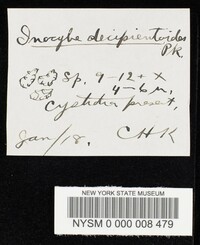 Inocybe decipientoides
Pk.
Sp. 9-12 + x
4-6 u,
Cystidia present,
Jan/18. C H K
NEW YORK STATE MUSEUM
NYSM 0 000 008 479